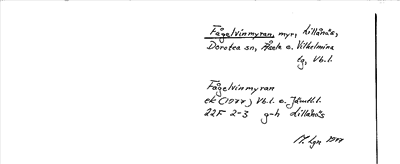 Fågelvinmyran, myr, Lillånäs,
Dorotea sn, Åsele o. Vilhelmina
tg, Vb.l.
Fågelvinmyran
ek (1977) Vb.l. o. Jämtl.l.
22F 2-3 g-h Lillånäs
M. Lgn 1977